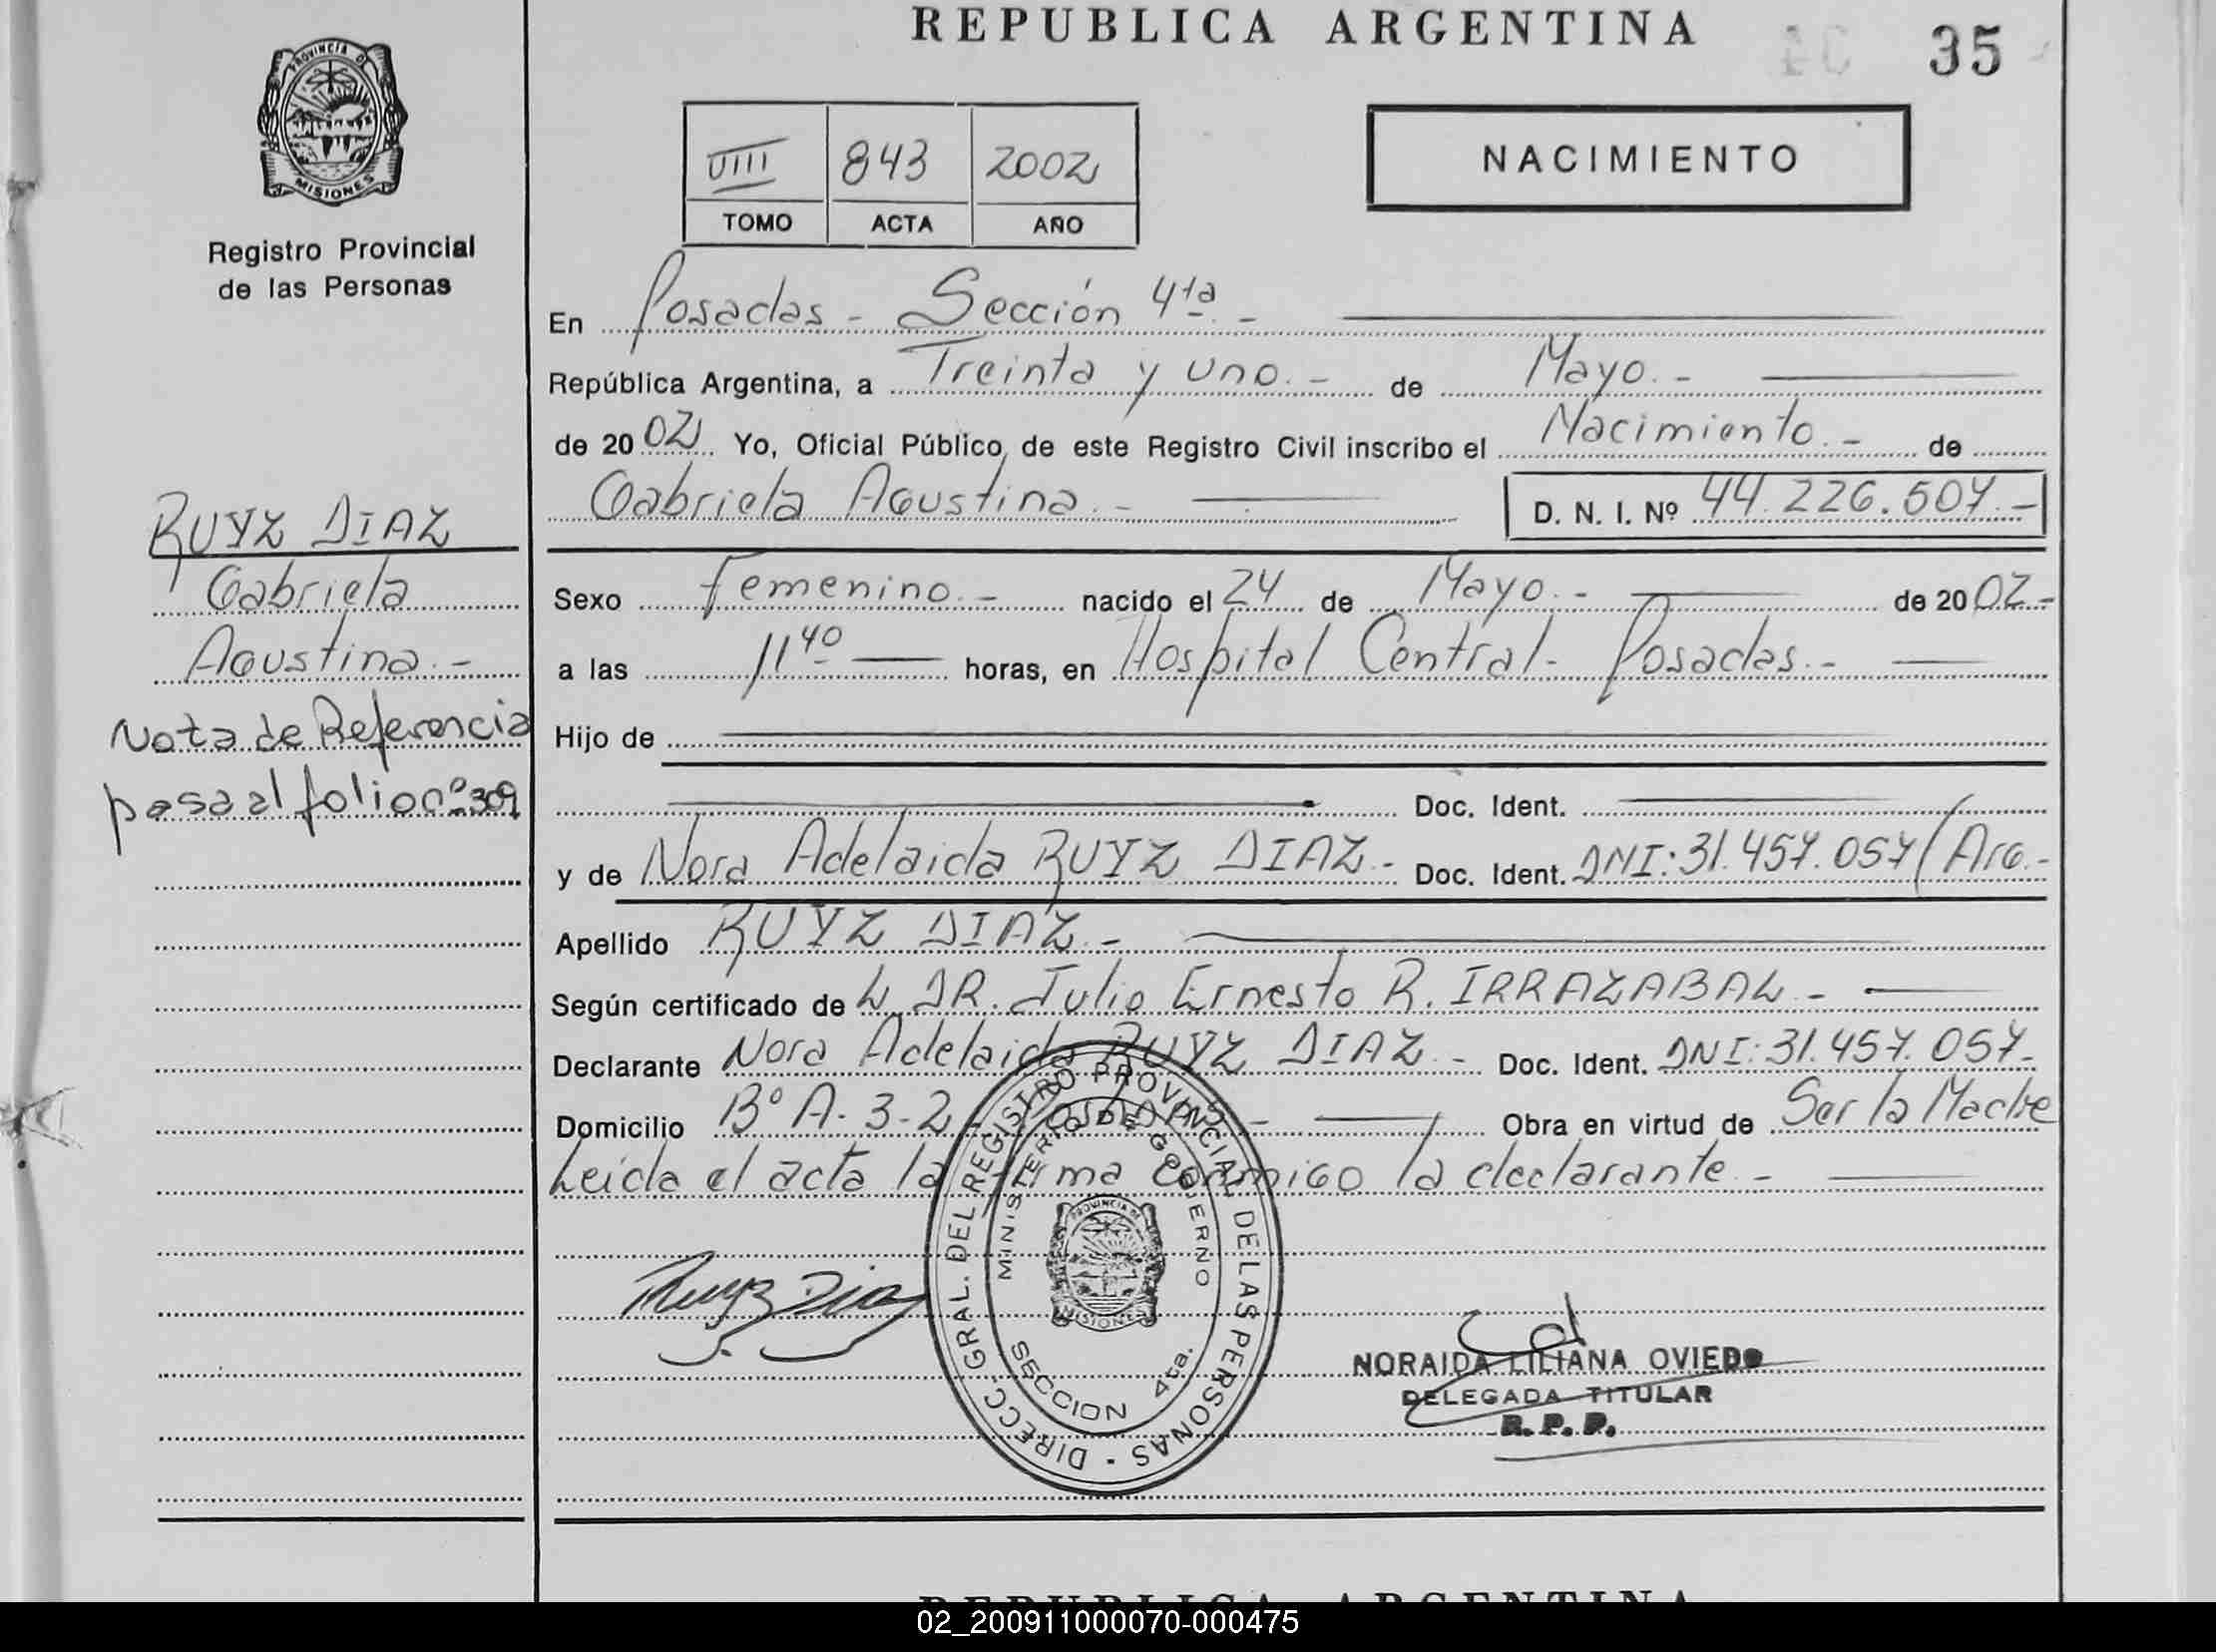 REPUBLICA ARGENTINA
35
PROVINCIA DE
MISIONES
Registro Provincial
de las Personas
VIII 843 2002
TOMO ACTA AÑO
NACIMIENTO
En Posadas - Sección 4ta. -
República Argentina, a Treinta y uno. - de Mayo. -
de 2002 Yo, Oficial Público de este Registro Civil inscribo el Nacimiento. - de
Gabriela Agustina. - D. N. I. Nº 44.226.507.-
RUYZ DIAZ
Gabriela
Agustina. -
Nota de Referencia
pasa al folio nº 309
Sexo Femenino. - nacido el 24 de Mayo. - de 2002-
a las 11 40 horas, en Hospital Central - Posadas. -
Hijo de
Doc. Ident.
y de Nora Adelaida RUYZ DIAZ. - Doc. Ident. DNI: 31.457.057/Arg.-
Apellido RUYZ DIAZ. -
Según certificado de L DR. Julio Ernesto R. IRRAZABAL. -
Declarante Nora Adelaida RUYZ DIAZ. - Doc. Ident. DNI: 31.457.057.
Domicilio Bº A-3-2 - Posadas. - Obra en virtud de Ser la Madre
Leída el acta la firma conmigo la declarante. -
Ruyz Diaz
DIRECC. GRAL. DEL REGISTRO PROVINCIAL DE LAS PERSONAS
MINISTERIO DE GOBIERNO
PROVINCIA DE
MISIONES
SECCION 4ta.
NORAIDA LILIANA OVIEDO
DELEGADA TITULAR
R. P. P.
REPUBLICA ARGENTINA
02_200911000070-000475